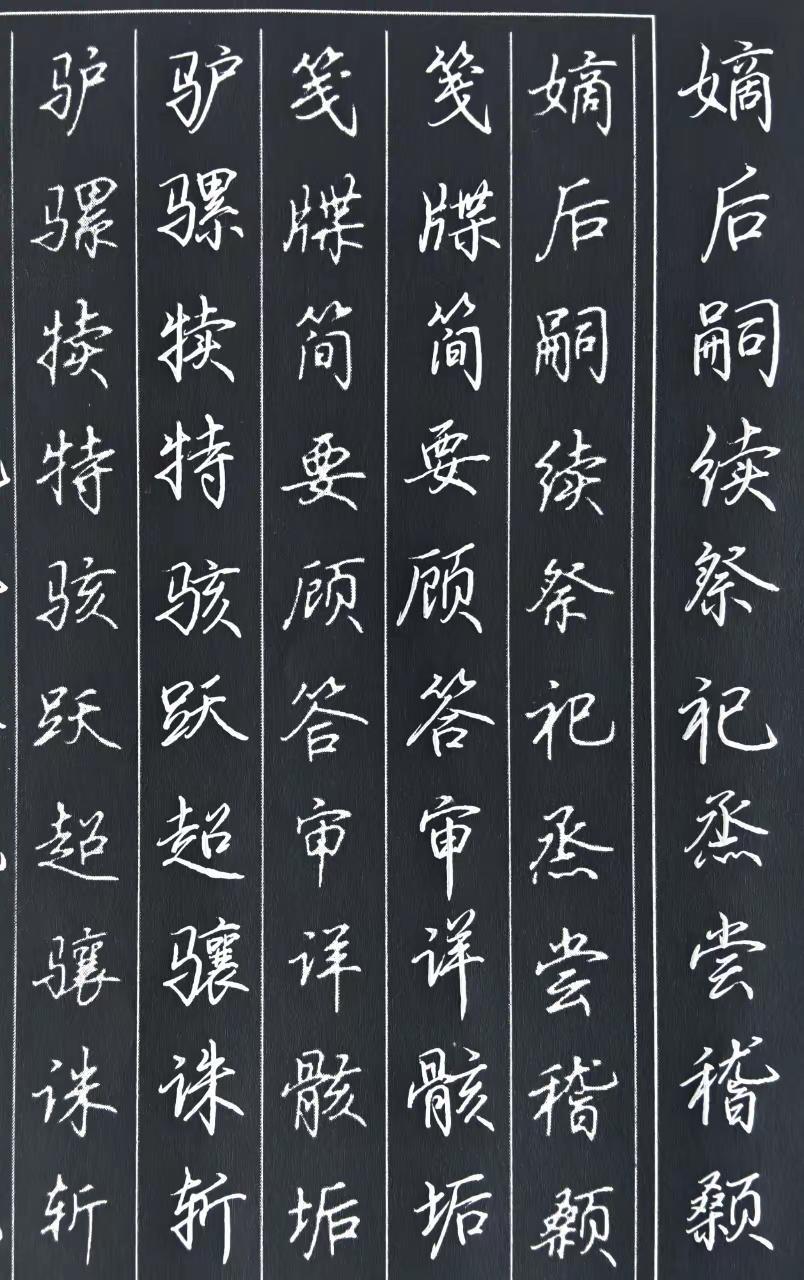 嫡后嗣续祭祀烝尝稽颡
嫡后嗣续祭祀烝尝稽颡
笺牒简要顾答审详骸垢
笺牒简要顾答审详骸垢
驴骡犊特骇跃超骧诛斩
驴骡犊特骇跃超骧诛斩